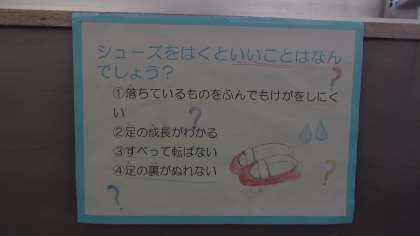 シューズをはくといいことはなん
でしょう？
①落ちているものをふんでもけがをしにく
い
②足の成長がわかる
③すべって転ばない
④足の裏がぬれない